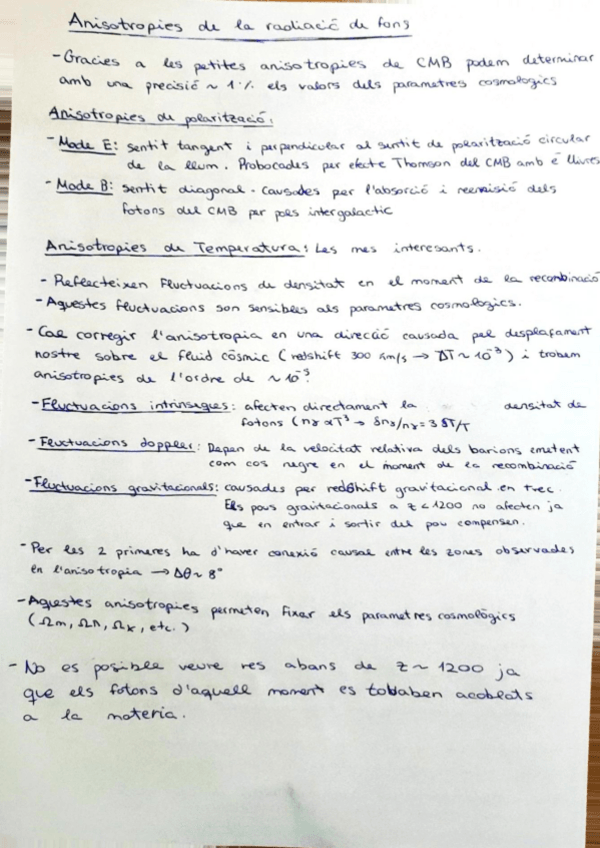 Anisotropies de la radiació de fons
- Gracies a les petites anisotropies de CMB podem determinar
amb una precisió ~ 1% els valors dels parametres cosmologics
Anisotropies de polarització:
- Mode E: sentit tangent i perpendicular al sentit de polarització circular
de la llum. Probocades per efecte Thomson del CMB amb e⁻ lliures
- Mode B: sentit diagonal. Causades per l'absorció i reemisió dels
fotons del CMB per pols intergalactic
Anisotropies de Temperatura: Les mes interesants.
- Reflecteixen fluctuacions de densitat en el moment de la recombinació
- Aquestes fluctuacions son sensibles als parametres cosmologics.
- Cal corregir l'anisotropia en una direcció causada pel desplaçament
nostre sobre el fluid cósmic (redshift 300 km/s → ΔT ~ 10⁻³) i trobem
anisotropies de l'ordre de ~ 10⁻⁵.
- Fluctuacions intrinseques: afecten directament la densitat de
fotons (nγ ∝ T³ → δnγ/nγ = 3 δT/T
- Fluctuacions doppler: Depen de la velocitat relativa dels barions emetent
com cos negre en el moment de la recombinació
- Fluctuacions gravitacionals: causades per redshift gravitacional en trec.
Els pous gravitacionals a z < 1200 no afecten ja
que en entrar i sortir del pou compensen.
- Per les 2 primeres ha d'haver conexió causal entre les zones observades
en l'anisotropia → Δθ ~ 8°
- Aquestes anisotropies permeten fixar els parametres cosmològics
(Ωm, ΩΛ, Ωk, etc.)
- No es posible veure res abans de z ~ 1200 ja
que els fotons d'aquell moment es tobaben acoblats
a la materia.